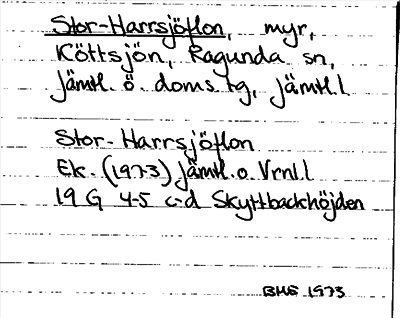 Stor-Harrsjöflon, myr,
Köttsjön, Ragunda sn,
Jämtl. ö. doms. tg, Jämtl. l
Stor-Harrsjöflon
Ek. (1973) Jämtl. o. Vrnl. l
19 G 4-5 c-d Skyttbackhöjden
BHS 1973